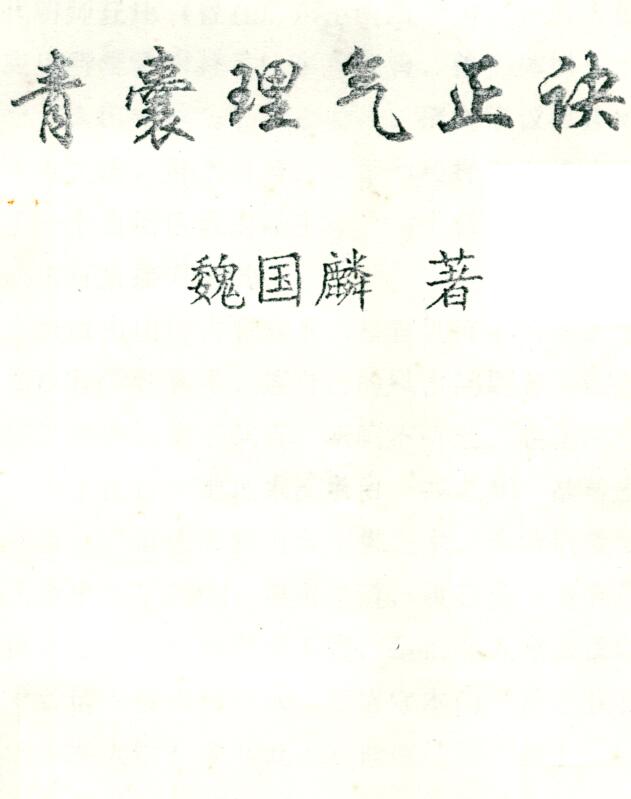 青囊理气正诀
魏国麟 著